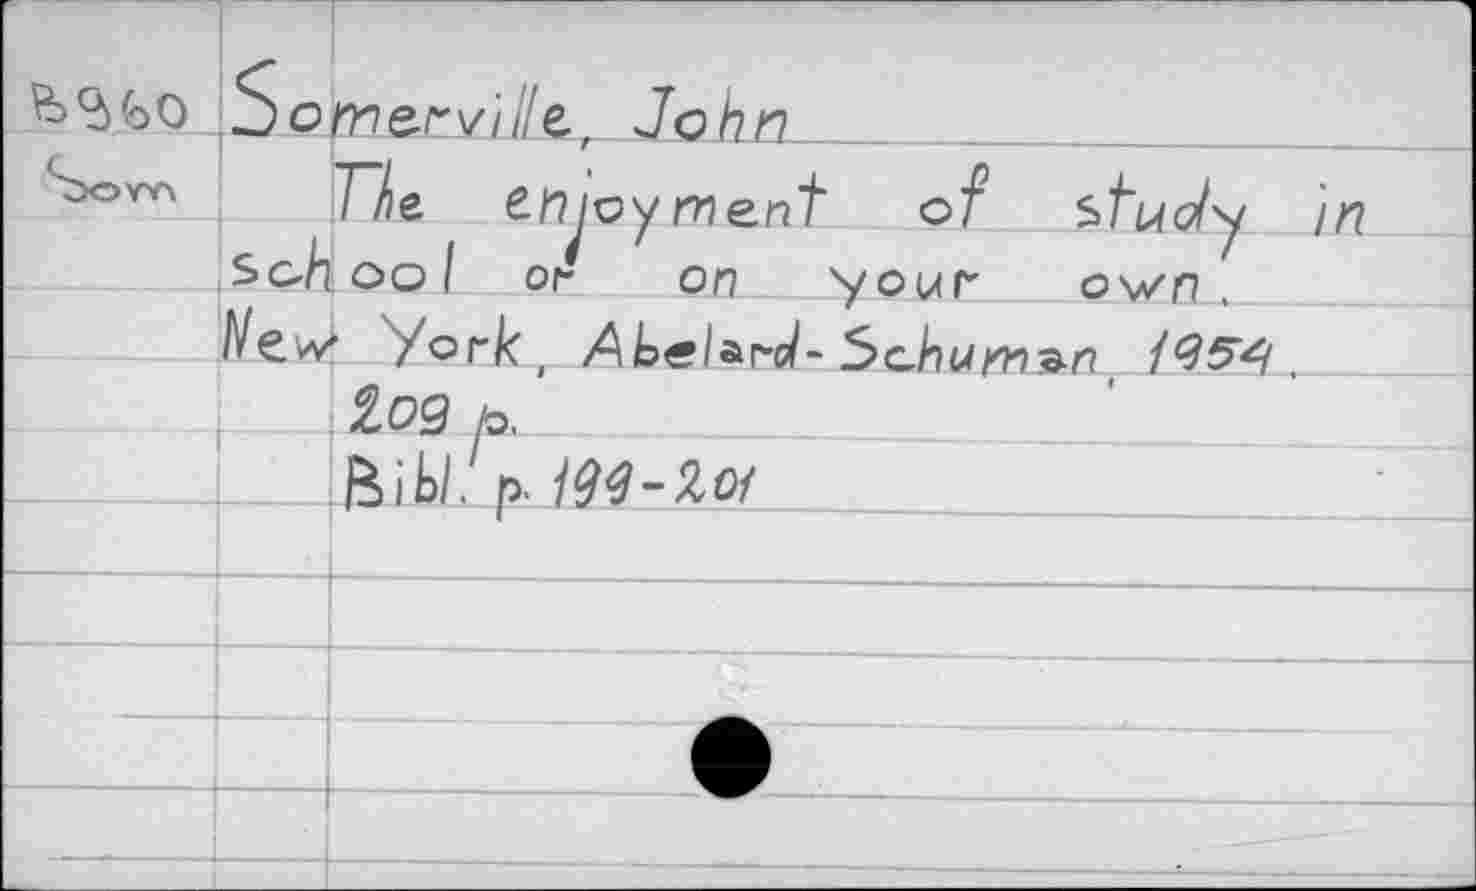 B960 Somerville, John
Som The enjoyment of study in
school or on your own.
New York, Abelard-Schuman, 1954.
209 p.
Bibl. p. 199-201